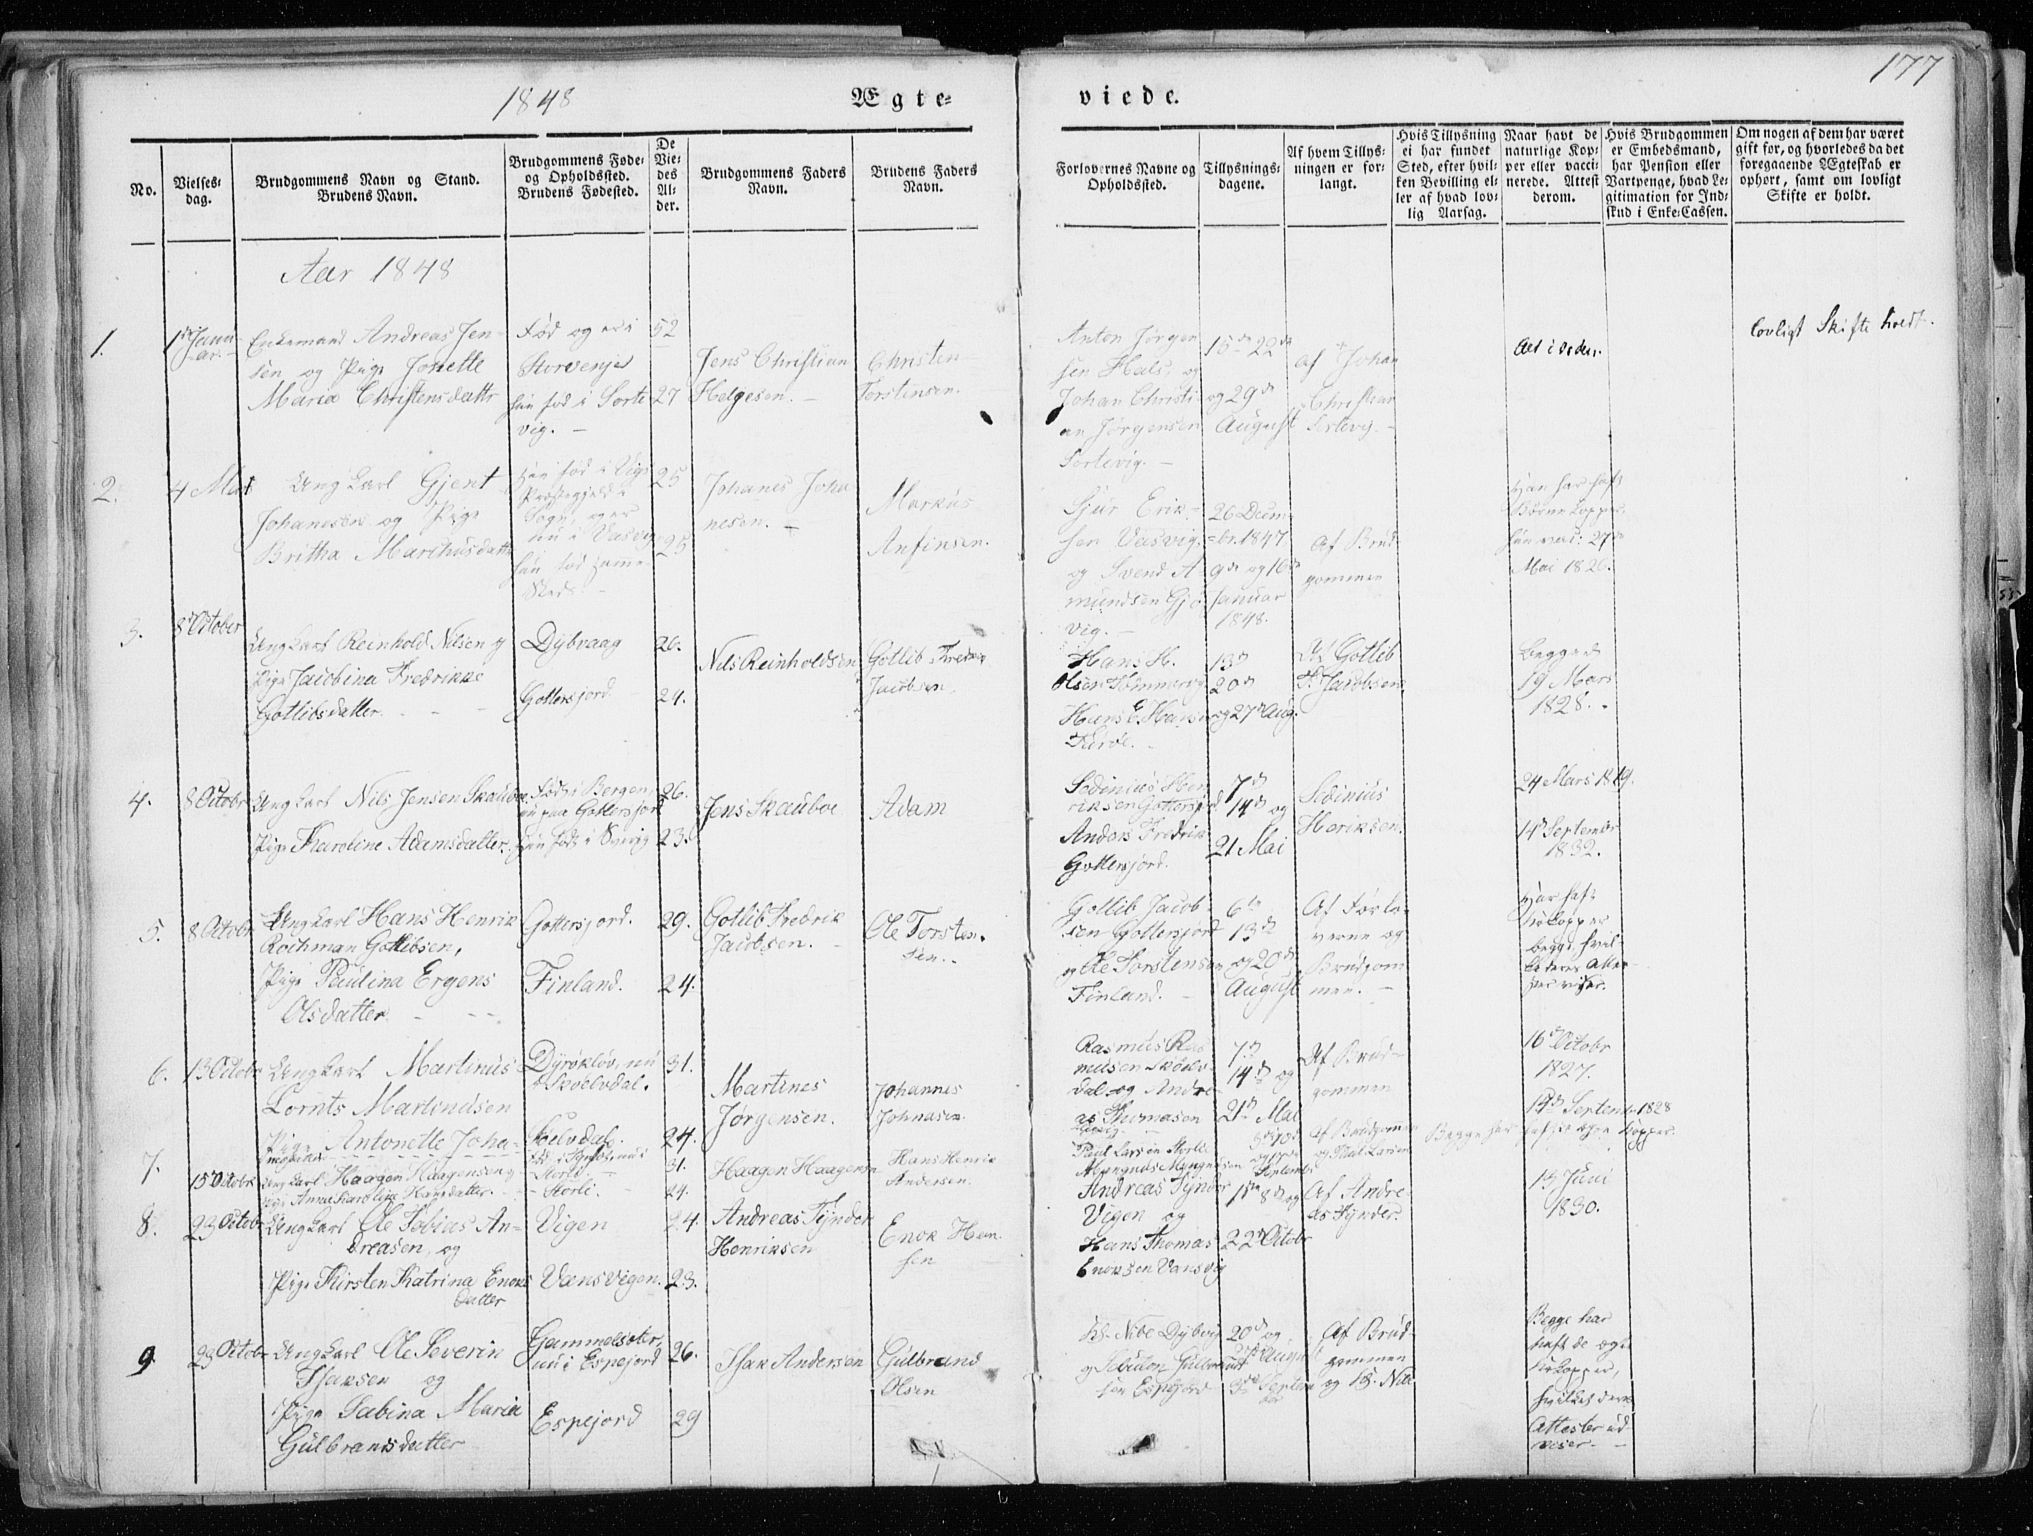 177
1848
Ægte-
viede.
No.
Vielses-
dag.
Brudgommens Navn og Stand.
Brudens Navn.
Brudgommens Føde-
og Opholdssted.
Brudens Fødested.
De
Vie-
des
Al-
der.
Brudgommens Faders
Navn.
Brudens Faders
Navn.
Forlovernes Navne og
Opholdssted.
Tillysnings-
dagene.
Af hvem Tillys-
ningen er for-
langt.
Hvis Tillysning
ei har fundet
Sted, efter hvil-
ken Bevilling el-
ler af hvad lov-
lig Aarsag.
Naar havt de
naturlige Kop-
per eller vacci-
nerede. Attest
derom.
Hvis Brudgommen
er Embedsmand,
har Pension eller
Vartpenge, hvad Le-
gitimation for Ind-
skud i Enke-Cassen.
Om nogen af dem har været
gift før, og hvorledes da det
foregaaende Ægteskab er
ophørt, samt om lovligt
Skifte er holdt.
Aar 1848
1.
Enkemand Andreas Jen-
sen og Pige Jonette
Maria Christensdattr
Fød og er i
Storvenje
hun fød i Sorte
vig. -
52
27
Jens Christian
Helgesen. -
Christen
Torstensen.
Anton Jørgen
sen Hals, og
Johan Christi-
an Jørgensen
Sortevig. -
15de 22de
og 29de
August
Af Johan
Christian
Sortevig. -
Alt i Orden.
lovligt Skifte holdt.
2.
4 Mai
Ungkarl Gjert
Johanesen og Pige
Britha Marchusdatter
25
25
Johanes Joha
nesen. -
Markus
Anfinsen.
Sjur Erik-
sen Vasvig.
og Svend A-
mundsen
vig. -
26 Decem-
br. 1847
9de og 16de
Januar
1848.
Af Brud-
gommen
Mai 1826.
3.
8d October
Ungkarl Reinhold Nilsen og
Pige Jacobina Fredrikke
Gotlibsdatter. - -
Dybvaag
Gottersjord.
26.
24.
Nils Reinholdsen
Gotlib Fredrik
Jacobsen.
Hans H.
Olsen
Hans E. Hansen
13d
20de
og 27de Aug.
Af Gotlib
F. Jacobsen.
Begge d
19 Mars
1828.
4.
8 Octobr
Ungkarl Nils Jensen Skauboe.
Pige Karoline Adamsdatter.
Født i Bergen,
nu paa Gottersjord
Hun født i Sverig
26.
23.
Jens Skauboe
Adam
Sedinius Hen
riksen Gottersjord
Anders Fredrik
Gottersjord.
7de
14de og
21 Mai
Sedinius
Henriksen.
24 Mars 1819.
14d Septembr
1832.
5.
8 Octobr
Ungkarl Hans Henrik
Rochman Gotlibsen,
Pige Paulina Ergens
Olsdatter. - -
Gottersjord.
Finland.
29.
24.
Gotlib Fredrik
Jacobsen. -
Ole Torsten-
sen.
Gotlib Jacob-
sen Gottersjord
og Ole Torstensen
Finland. -
6te
13de
og 20de
August
Af Forlo-
verne og
Brudgom
men. -
6.
13 Octobr
Ungkarl Martinus
Lornts Martinussen
Pige Antonette Joha-
Dyrøkløv, nu
i Skoelvdal.
Skoelvdal.
31.
24.
Martines
Jørgensen.
Johannes
Johnasen.
Rasmus Ras
musen Skoelv-
dal og Andre-
as Thomasen
7de
14de og
21de Mai
Af Brud-
gommen
16d Octobr
1827.
14de Septembr 1828
7.
15 Octobr
Ungkarl Haagen Haagensen og
Pige Anna Karolina Hansdatter.
Storli.
31.
24.
Haagen Haagensen
Hans Henrik
Andersen.
Paul Larsen Storli
Magnus Magnusen
Af Brudgommen
og Paul Larsen
8.
23 Octobr
Ungkarl Ole Tobias An-
dreasen, og
Pige Kirsten Katrina Enoks
datter
Vigen
Vansvigen.
24.
23.
Andreas Tynder
Henriksen
Enok Han-
sen
Andreas Tynder
Vigen og
Hans Thomas
Enoksen Vansvig
1ste 8de og
22d Octobr
Af Andre-
as Tynder.
13 Juni
1830.
9.
23 Octobr
Ungkarl Ole Severin
Isaksen og
Pige Sabina Maria
Gulbransdatter
Gammelsæter,
nu i Espejord
Espejord
26.
29
Isak Andersen
Gulbrand
Olsen
20de og
Af Brud-
gommen
Begge har
haft de ægte
Kokopper,
hvilket deres
Attester ud
viser. -